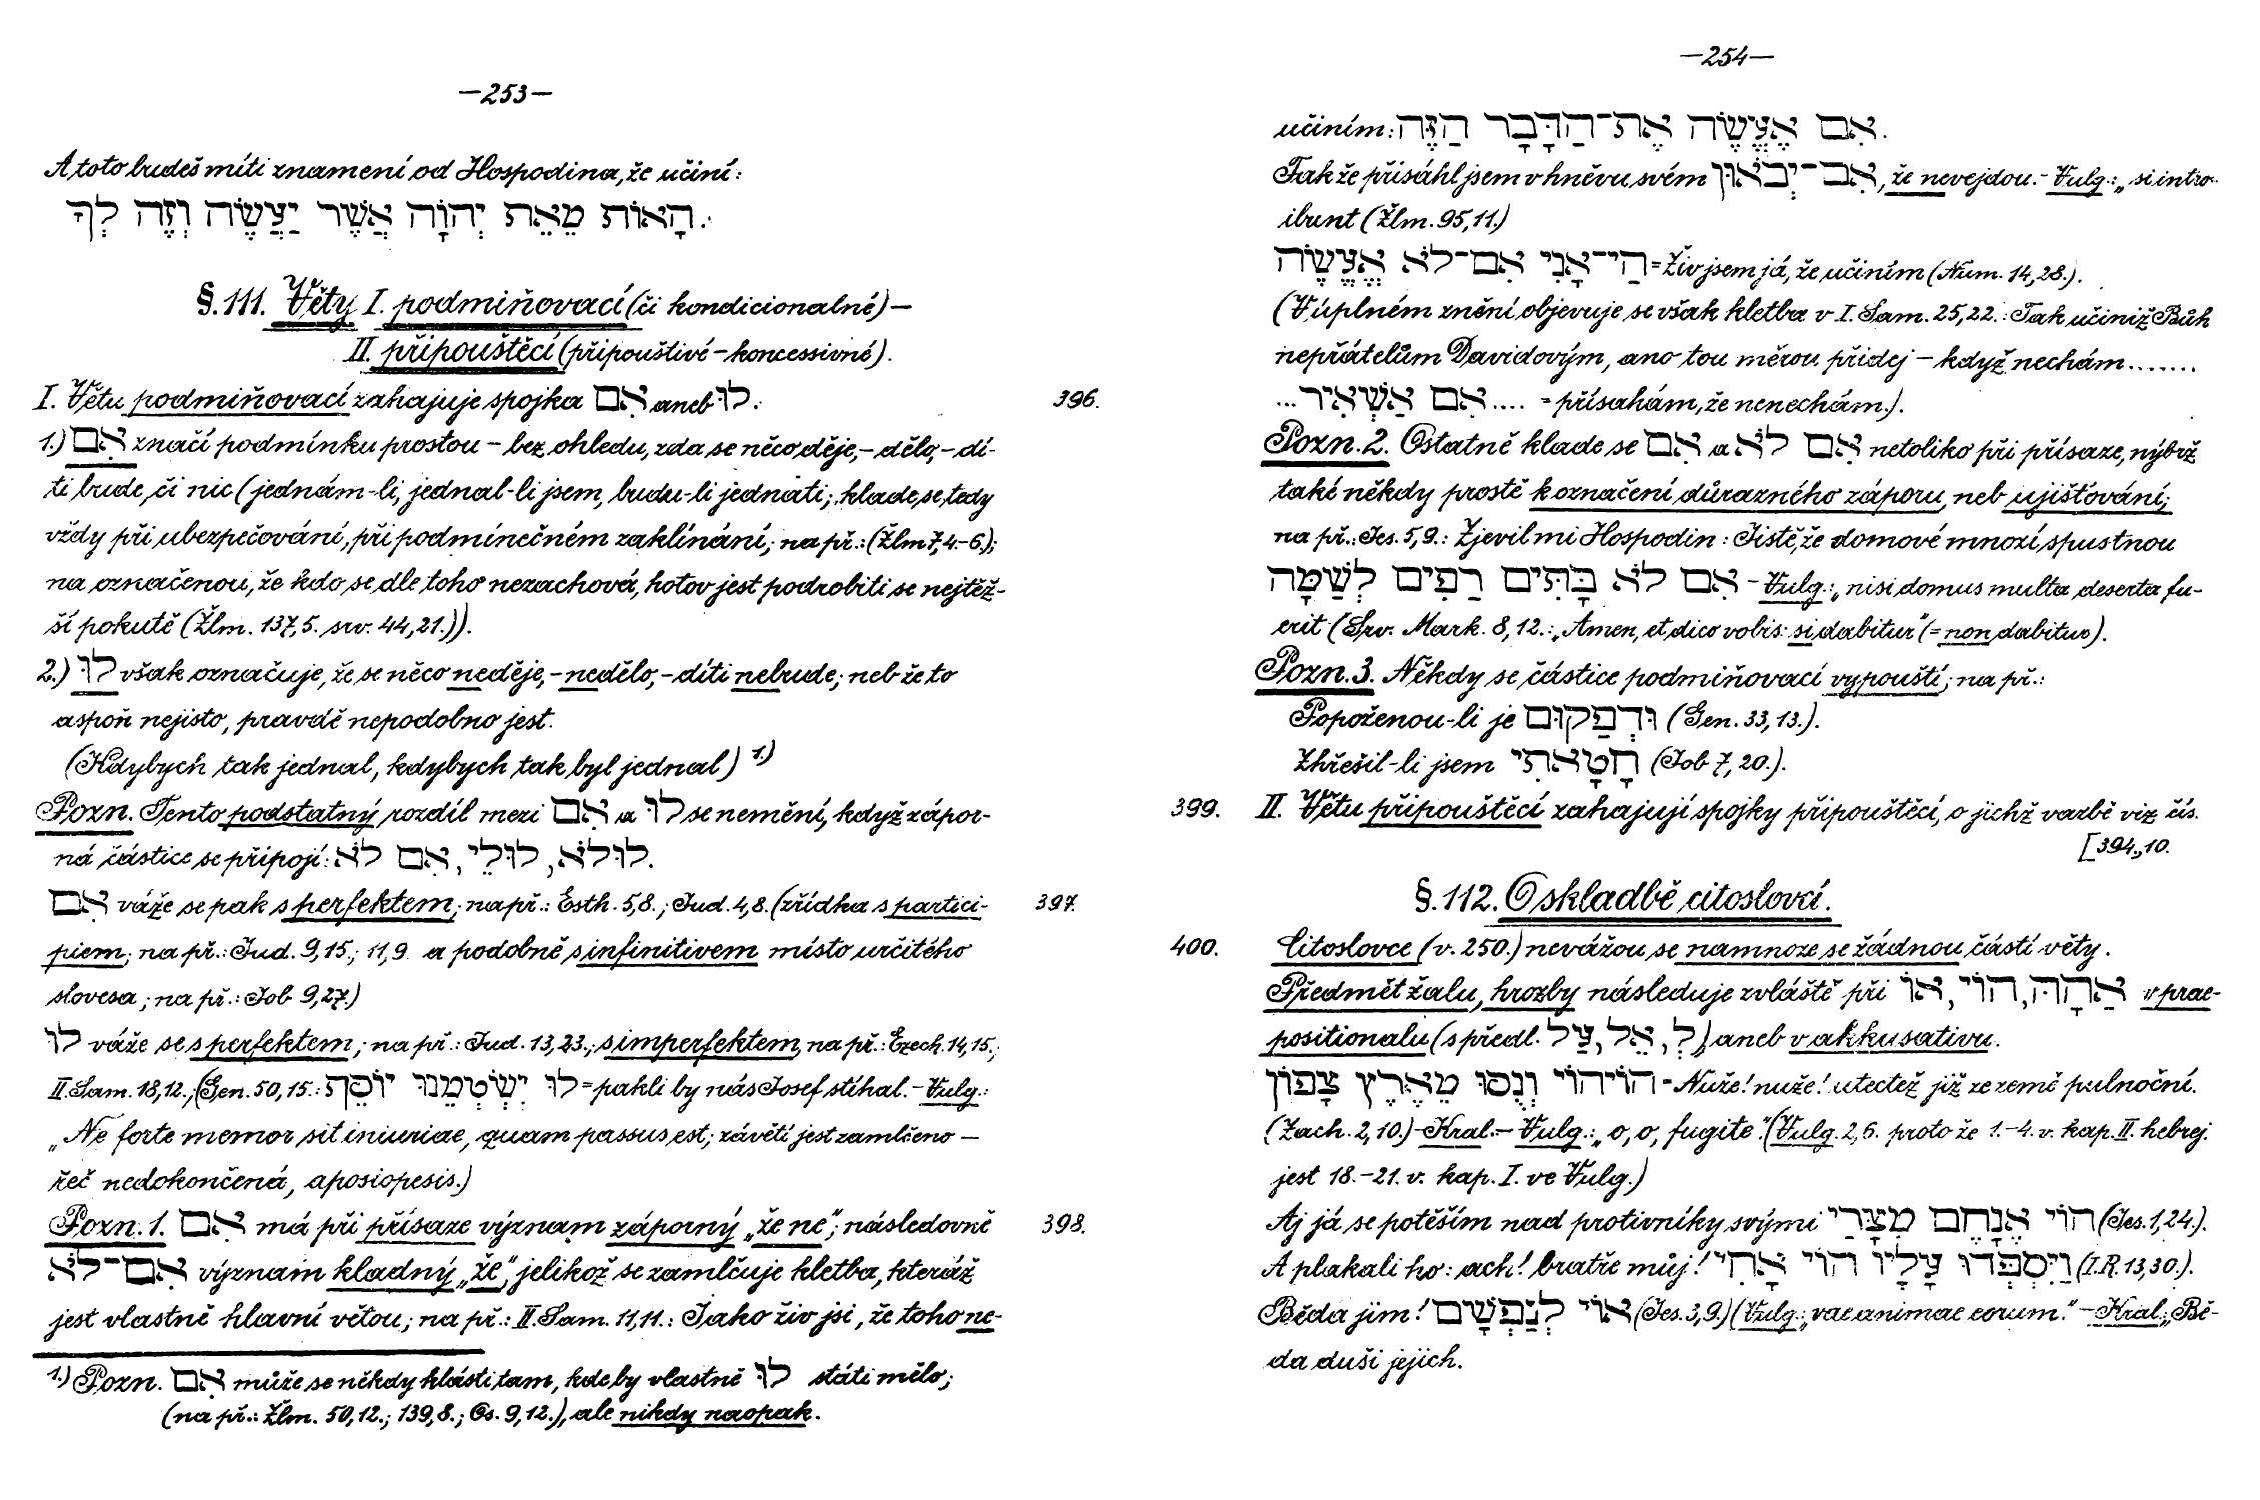 —253—
A toto budeš míti znamení od Hospodina, že učiní:
הָאוֹת מֵאֵת יְהוָֹה אֲשֶׁר יַעֲשֶׂה וְזֶה לְךָ.:
§. 111. Věty I. podmiňovací (či kondicionalné) —
II. připouštěcí (připouštivé – koncessivné).
I. Větu podmiňovací zahajuje spojka אִם aneb לוּ.: 396.
1.) אִם značí podmínku prostou – bez ohledu, zda se něco děje, – dělo, – dí-
ti bude, či nic (jednám-li, jednal-li jsem, budu-li jednati; klade se tedy
vždy při ubezpečování, při podmínečném zaklínání; na př.: (Žlm 7, 4.–6.);
na označenou, že kdo se dle toho nezachová, hotov jest podrobiti se nejtěž-
ší pokutě (Žlm. 137, 5. srv. 44, 21.)).
2.) לוּ však označuje, že se něco neděje, – nedělo, – díti nebude; neb že to
aspoň nejisto, pravdě nepodobno jest.
(Kdybych tak jednal, kdybych tak byl jednal) 1.)
Pozn. Tento podstatný rozdíl mezi אִם a לוּ se nemění, když zápor-
ná částice se připojí: אִם לֹא, לוּלֵי, לוּלֹא.
אִם váže se pak s perfektem; na př.: Esth. 5,8.; Jud. 4,8. (zřídka s partici- 397.
piem; na př.: Jud. 9,15.; 11,9. a podobně s infinitivem místo určitého
slovesa; na př.: Job 9,27.)
לוּ váže se s perfektem; na př.: Jud. 13,23.; s imperfektem, na př.: Ezech. 14,15.;
II. Sam. 18,12.; (Gen. 50,15.: לוּ יִשְׂטְמֵנוּ יוֹסֵף = pakli by nás Josef stíhal. – Vulg.:
„Ne forte memor sit iniuriae, quam passus est; závětí jest zamlčeno —
řeč nedokončená, aposiopesis.)
Pozn. 1. אִם má při přísaze význam záporný „že ne“; následovně 398.
אִם־לֹא význam kladný „že“, jelikož se zamlčuje kletba, kteráž
jest vlastně hlavní větou; na př.: II. Sam. 11,11.: Jako živ jsi, že toho ne-
1.) Pozn. אִם může se někdy klásti tam, kde by vlastně לוּ státi mělo;
(na př.: Žlm. 50,12.; 139,8.; Os. 9,12.), ale nikdy naopak.
—254—
učiním: אִם אֶעֱשֶׂה אֶת־הַדָּבָר הַזֶּה.
Tak že přisáhl jsem v hněvu svém אִם־יְבֹאוּן, že nevejdou. – Vulg.: „si intro-
ibunt (Žlm. 95,11.)
חַי־אָנִי אִם־לֹא אֶעֱשֶׂה = Živ jsem já, že učiním (Num. 14,28.).
(V úplném znění objevuje se však kletba v I. Sam. 25,22.: Tak učiniž Bůh
nepřátelům Davidovým, ano tou měrou přidej – když nechám.......
...אִם אַשְׁאִיר.... = přísahám, že nenechám.).
Pozn. 2. Ostatně klade se אִם a אִם לֹא netoliko při přísaze, nýbrž
také někdy prostě k označení důrazného záporu, neb ujišťování;
na př.: Jes. 5,9.: Zjevil mi Hospodin: Jistě, že domové mnozí spustnou
אִם לֹא בָּתִּים רַבִּים לְשַׁמָּה – Vulg.: „nisi domus multa deserta fu-
erit (Srv. Mark. 8,12.: „Amen, et dico vobis: si dabitur“ (= non dabitur).
Pozn. 3. Někdy se částice podmiňovací vypouští; na př.:
Popoženou-li je וּדְפָקוּם (Gen. 33,13.).
Zhřešil-li jsem חָטָאתִי (Job 7,20.).
399. II. Větu připouštěcí zahajují spojky připouštěcí, o jichž vazbě viz čís.
[394., 10.
§. 112. O skladbě citoslovcí.
400. Citoslovce (v. 250.) nevážou se namnoze se žádnou částí věty.
Předmět žalu, hrozby následuje zvláště při אֲהָהּ, הוֹי, אוֹי v prae-
positionalu (s předl. לְ, אֶל, עַל) aneb v akkusativu.
הוֹי הוֹי וְנֻסוּ מֵאֶרֶץ צָפוֹן = Nuže! nuže! utectež již ze země pulnoční.
(Zach. 2,10.) – Kral. – Vulg.: „o, o, fugite“. (Vulg. 2,6. proto že 1.–4. v. kap. II. hebrej.
jest 18.–21. v. kap. I. ve Vulg.)
Aj já se potěším nad protivníky svými הוֹי אֶנָּחֵם מִצָּרַי (Jes. 1,24.).
A plakali ho: ach! bratře můj! וַיִּסְפְּדוּ עָלָיו הוֹי אָחִי (I. R. 13,30.).
Běda jim! אוֹי לְנַפְשָׁם (Jes. 3,9.) (Vulg.: „vae animae eorum.“ – Kral.: „Bě-
da duši jejich.